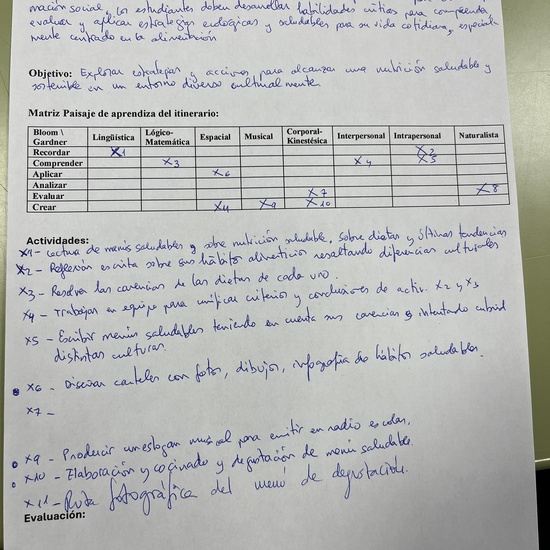 mación social, los estudiantes deben desarrollar habilidades críticas para comprender,
evaluar y aplicar estrategias ecológicas y saludables para su vida cotidiana, especial-
mente centrado en la alimentación
Objetivo: Explorar estrategias y acciones para alcanzar una nutrición saludable y
sostenible en un entorno diverso culturalmente.
Matriz Paisaje de aprendiza del itinerario:
Bloom \ Gardner Lingüística Lógico-Matemática Espacial Musical Corporal-Kinestésica Interpersonal Intrapersonal Naturalista
Recordar X1 X2
Comprender X3 X4 X5
Aplicar X6
Analizar
Evaluar X7 X8
Crear X11 X9 X10
Actividades:
X1- Lectura de menús saludables y sobre nutrición saludable, sobre dietas y últimas tendencias
X2- Reflexión escrita sobre sus hábitos alimenticios resaltando diferencias culturales
X3- Resolver las carencias de las dietas de cada uno.
X4- Trabajar en equipo para unificar criterios y conclusiones de activ. X2 y X3
X5- Escribir menús saludables teniendo en cuenta sus carencias e intentando cubrir
distintas culturas.
X6- Diseñar carteles con fotos, dibujos, infografía de hábitos saludables.
X7-
X9- Producir un eslogan musical para emitir en radio escolar.
X10- Elaboración y cocinado y degustación de menú saludable.
X11- Ruta fotográfica del menú de degustación.
Evaluación: